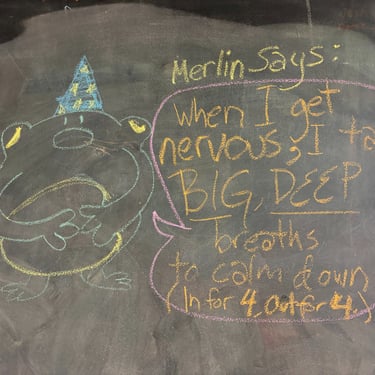 Merlin says:
when I get
nervous, I ta
BIG, DEEP
breaths
to calm down
(In for 4, out for 4)